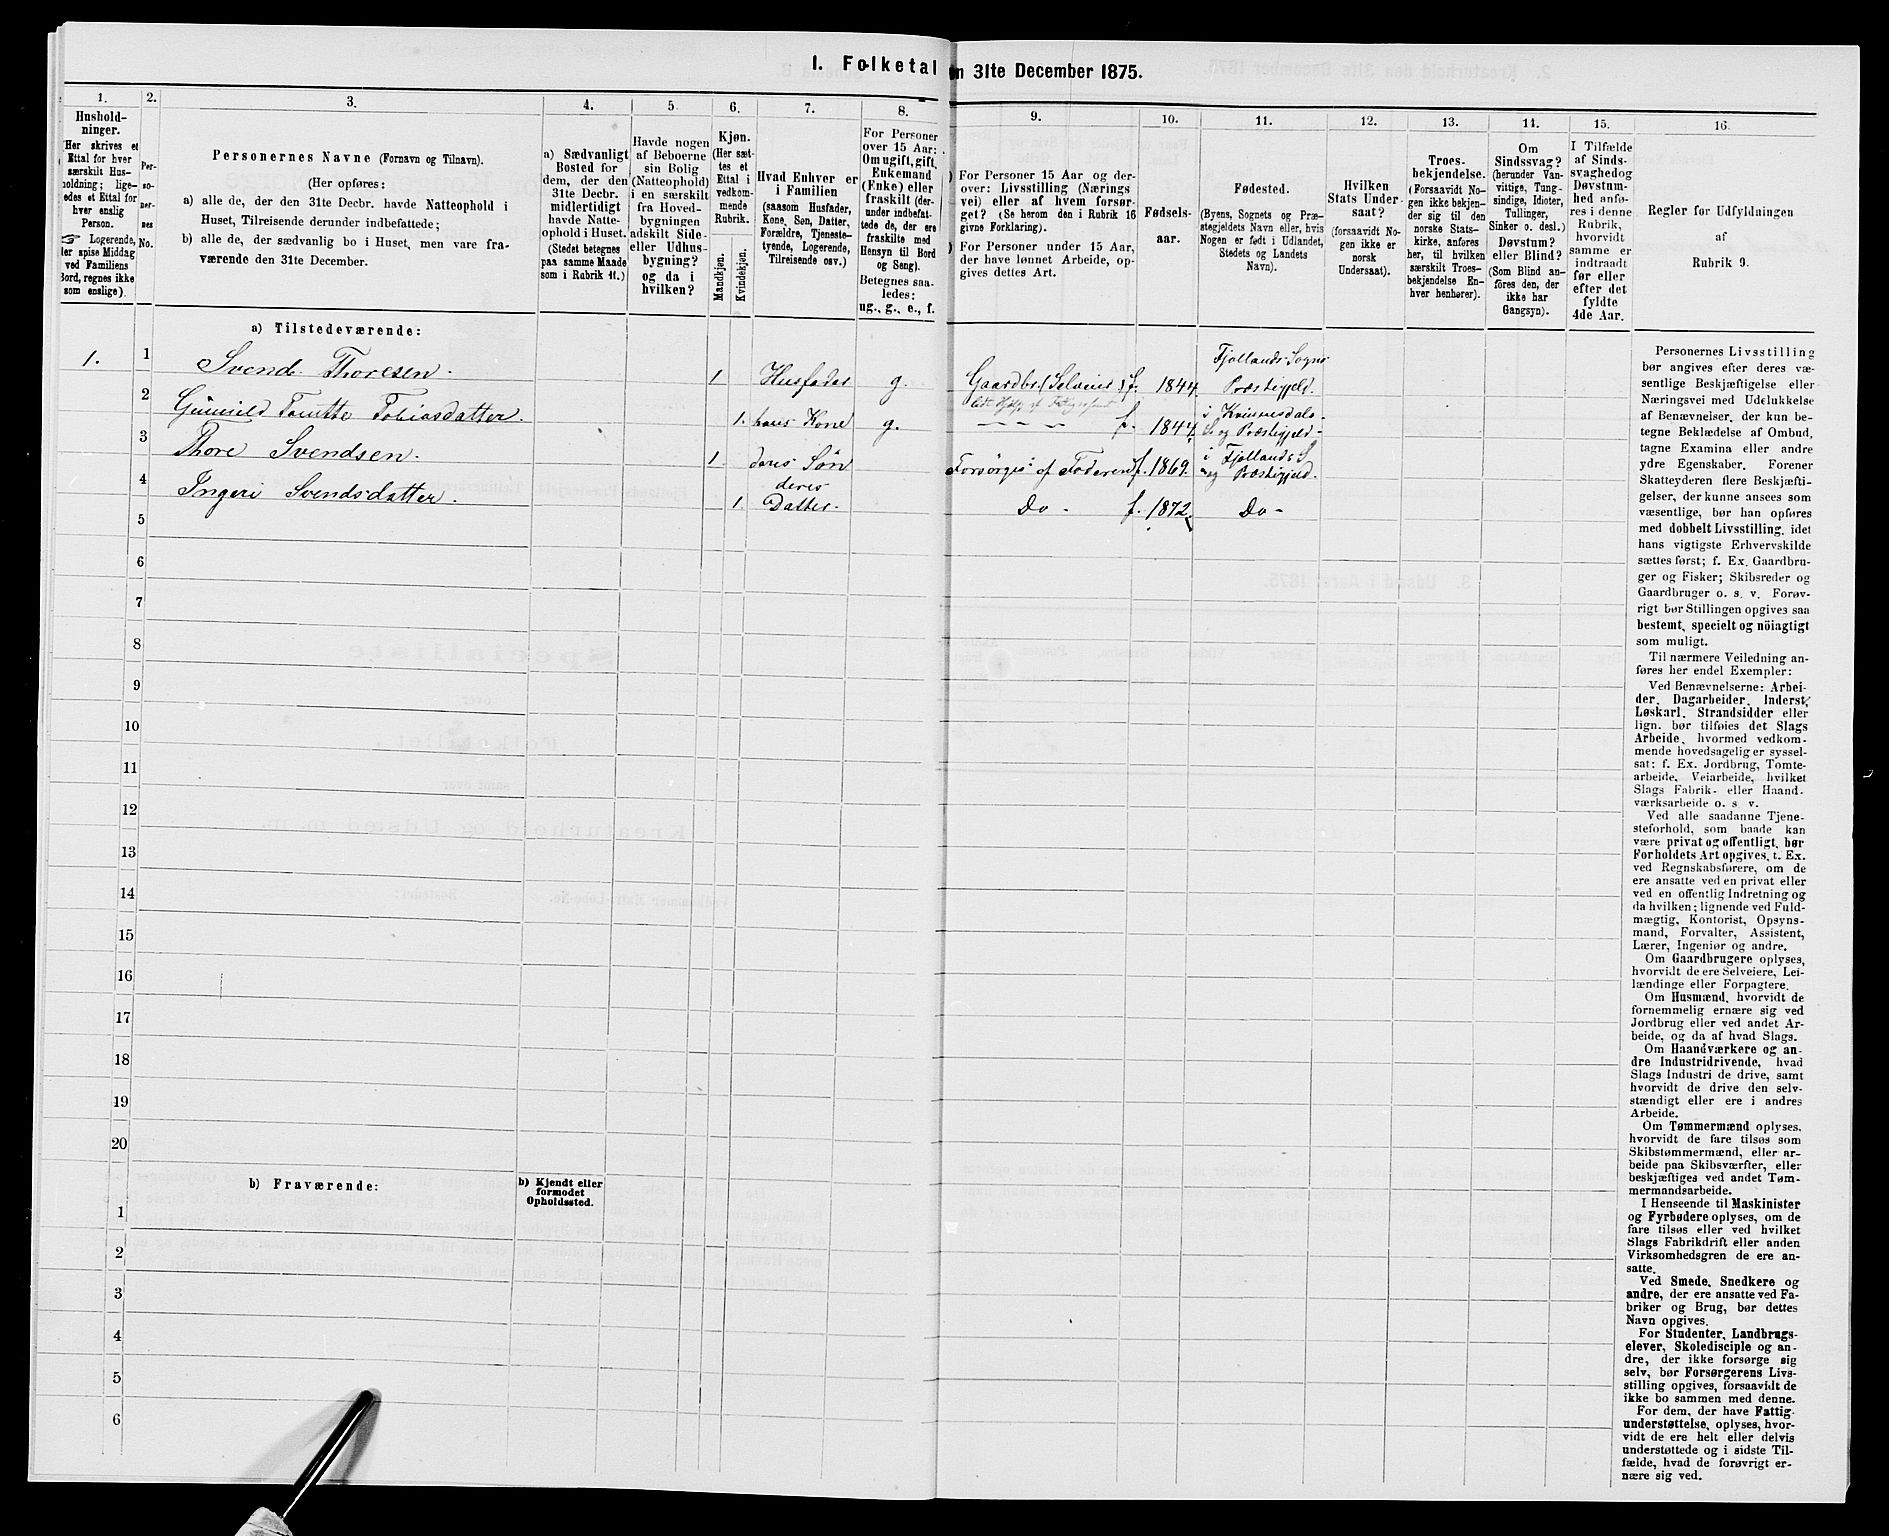 1. Folketal
en 31te December 1875.
1.
Hushold-
ninger.
(Her skrives et
Ettal for hver
særskilt Hus-
holdning; lige-
ledes et Ettal for
hver enslig
Person.
☞ Logerende,
der spise Middag
ved Familiens
Bord, regnes ikke
som enslige).
2.
Per-
so-
ner-
nes
No.
3.
Personernes Navne (Fornavn og Tilnavn).
(Her opføres:
a) alle de, der den 31te Decbr. havde Natteophold i
Huset, Tilreisende derunder indbefattede;
b) alle de, der sædvanlig bo i Huset, men vare fra-
værende den 31te December.
4.
a) Sædvanligt
Bosted for
dem, der den
31te Decbr.
midlertidigt
havde Natte-
ophold i Huset.
(Stedet betegnes
paa samme Maade
som i Rubrik 11.)
5.
Havde nogen
af Beboerne
sin Bolig
(Natteophold)
i en særskilt
fra Hoved-
bygningen
adskilt Side-
eller Udhus-
bygning?
og da i
hvilken?
6.
Kjøn.
(Her sæt-
tes et
Ettal i
vedkom-
mende
Rubrik.
Mandkjøn.
Kvindekjøn.
7.
Hvad Enhver er
i Familien
(saasom Husfader,
Kone, Søn, Datter,
Forældre, Tjeneste-
tyende, Logerende,
Tilreisende osv.)
8.
For Personer
over 15 Aar:
Om ugift, gift,
Enkemand
(Enke) eller
fraskilt (der-
under indbefat-
tede de, der ere
fraskilte med
Hensyn til Bord
og Seng).
Betegnes saa-
ledes:
ug., g., e., f.
9.
For Personer 15 Aar og der-
over: Livsstilling (Nærings
vei) eller af hvem forsør-
get? (Se herom den i Rubrik 16
givne Forklaring).
For Personer under 15 Aar,
der have lønnet Arbeide, op-
gives dettes Art.
10.
Fødsels-
aar.
11.
Fødested.
(Byens, Sognets og Præ-
stegjeldets Navn eller, hvis
Nogen er født i Udlandet,
Stedets og Landets
Navn).
12.
Hvilken
Stats Under-
saat?
(forsaavidt No-
gen ikke er
norsk
Undersaat).
13.
Troes-
bekjendelse.
(Forsaavidt No-
gen ikke bekjen-
der sig til den
norske Stats-
kirke, anføres
her, til hvilken
særskilt Troes-
bekjendelse En-
hver henhører).
14.
Om
Sindssvag?
(herunder Van-
vittige, Tung-
sindige, Idioter,
Tullinger,
Sinker o. desl.)
Døvstum?
eller Blind?
(Som Blind an-
føres den, der
ikke har
Gangsyn).
15.
I Tilfælde
af Sinds-
svaghed og
Døvstum-
hed anfø-
res i denne
Rubrik,
hvorvidt
samme er
indtraadt
før eller
efter det
fyldte
4de Aar.
16.
Regler for Udfyldningen
af
Rubrik 9.
a) Tilstedeværende:
1. 1 Svend Thoresen. 1 Husfader g. Gaardbr. (Selveier) f. 1844 Fjollands Sogn
Præstigjeld.
2 Gunnild Tomtte Tobiasdatter. 1. hans Kone g. f. 1844 i Kvinesdals
S. og Præstigjeld
3 Thore Svendsen. 1 deres Søn Forsørges af Faderen f. 1869. i Fjollands S
og Præstigjeld.
4 Ingeri Svendsdatter. 1. deres
Datter. Do - f. 1872 Do -
5
6
7
8
9
10
11
12
13
14
15
16
17
18
19
20
b) Fraværende:
b) Kjendt eller
formodet
Opholdssted.
1
2
3
4
5
6
Personernes Livsstilling
bør angives efter deres væ-
sentlige Beskjæftigelse eller
Næringsvei med Udelukkelse
af Benævnelser, der kun be-
tegne Beklædelse af Ombud,
tagne Examina eller andre
ydre Egenskaber. Forener
Skatteyderen flere Beskjæfti-
gelser, der kunne ansees som
væsentlige, bør han opføres
med dobbelt Livsstilling, idet
hans vigtigste Erhvervskilde
sættes først; f. Ex. Gaardbru-
ger og Fisker; Skibsreder og
Gaardbruger o. s. v. Forøv-
rigt bør Stillingen opgives saa
bestemt, specielt og nöiagtigt
som muligt.
Til nærmere Veiledning an-
føres her endel Exempler:
Ved Benævnelserne: Arbei-
der, Dagarbeider, Inderst,
Løskarl, Strandsidder eller
lign. bør tilføies det Slags
Arbeide, hvormed vedkom-
mende hovedsagelig er syssel-
sat; f. Ex. Jordbrug, Tomte-
arbeide, Veiarbeide, hvilket
Slags Fabrik- eller Haand-
værksarbeide o. s. v.
Ved alle saadanne Tjene-
steforhold, som baade kan
være privat og offentligt, bør
Forholdets Art opgives, t. Ex.
ved Regnskabsførere, om de
ere ansatte ved en privat eller
ved en offentlig Indretning og
da hvilken; lignende ved Fuld-
mægtig, Kontorist, Opsyns-
mand, Forvalter, Assistent,
Lærer, Ingeniør og andre.
Om Gaardbrugere oplyses,
hvorvidt de ere Selveiere, Lei-
lændinge eller Forpagtere.
Om Husmænd, hvorvidt de
fornemmelig ernære sig ved
Jordbrug eller ved andet Ar-
beide, og da af hvad Slags.
Om Haandværkere og an-
dre Industridrivende, hvad
Slags Industri de drive, samt
hvorvidt de drive den selv-
stændigt eller ere i andres
Arbeide.
Om Tømmermænd oplyses,
hvorvidt de fare tilsøs som
Skibstømmermænd, eller ar-
beide paa Skibsværfter, eller
beskjæftiges ved andet Tøm-
mermandsarbeide.
I Henseende til Maskinister
og Fyrbødere oplyses, om de
fare tilsøs eller ved hvilket
Slags Fabrikdrift eller anden
Virksomhedsgren de ere an-
satte.
Ved Smede, Snedkere og
andre, der ere ansatte ved Fa-
briker og Brug, bør dettes
Navn opgives.
For Studenter, Landbrugs-
elever, Skoledisciple og an-
dre, der ikke forsørge sig
selv, bør Forsørgerens Livs-
stilling opgives, forsaavidt de
ikke bo sammen med denne.
For dem, der have Fattig-
understøttelse, oplyses, hvor-
vidt de ere helt eller delvis
understøttede og i sidste Til-
fælde, hvad de forøvrigt er-
nære sig ved.